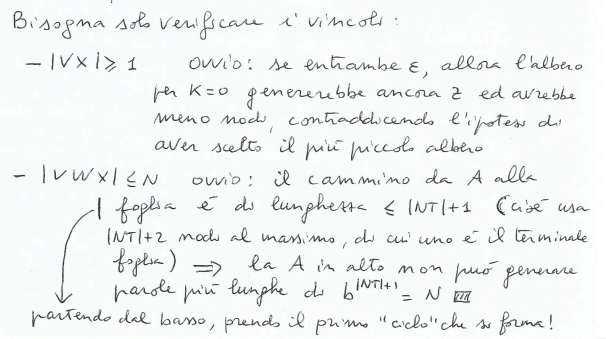 Bisogna solo verificare i vincoli:
- |VX| ≥ 1 ovvio: se entrambe ε, allora l'albero
per K=0 genererebbe ancora Z ed avrebbe
meno nodi, contraddicendo l'ipotesi di
aver scelto il più piccolo albero
- |VWX| ≤ N ovvio: il cammino da A alla
foglia è di lunghezza ≤ |NT|+1 (cioè usa
|NT|+2 nodi al massimo, di cui uno è il terminale
foglia) ⟹ la A in alto non può generare
parole più lunghe di b^|NT|+1 = N
partendo dal basso, prendo il primo "ciclo" che si forma!